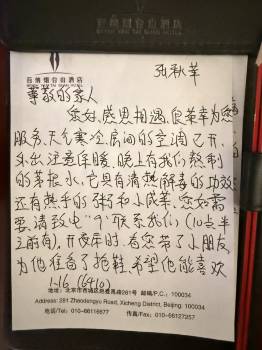 张秋苹
尊敬的家人
您好,感恩相遇,良荣幸为您
服务,天气寒冷,房间的空调已开,
外出注意保暖,晚上有我们熬制
的茅根水,它具有清热解毒的功效
还有热乎的粥和小咸菜,您如需
要,请致电“9”联系我们(10点半
之前有),开夜床时,看您带了小朋友,
为他准备了拖鞋,希望他能喜欢
1-16 (6410)
地址:北京市西城区赵登禹路281号 邮编/P.C.:100034
Address: 281 Zhaodengyu Road, Xicheng District, Beijing: 100034
电话/Tel: 010-66116677 传真/Fax: 010-66127257